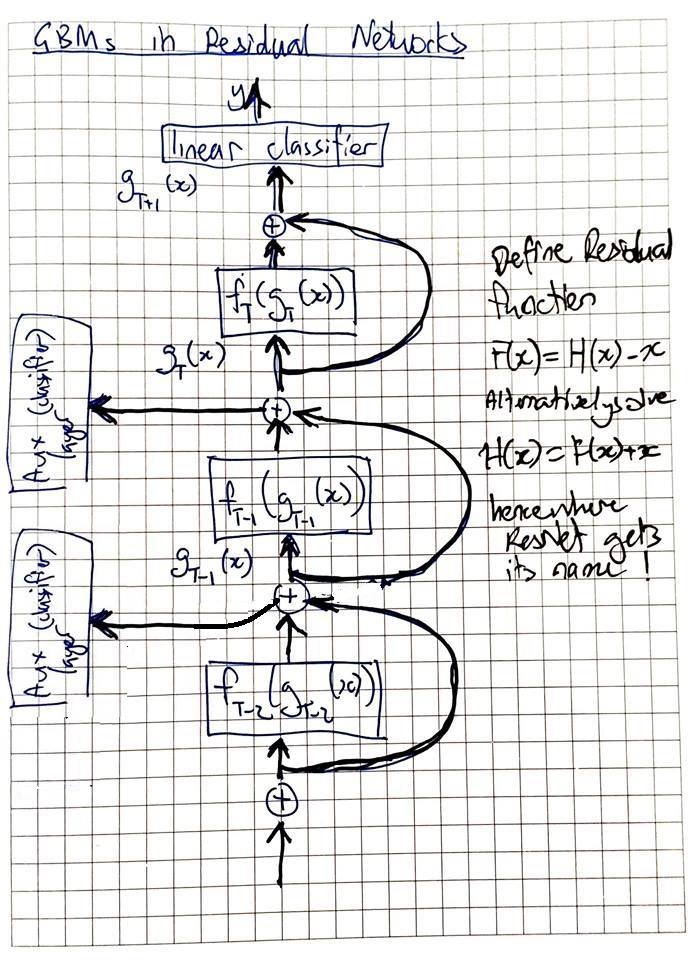 GBMs in Residual Networks
y
linear classifier
g_{T+1}(x)
+
f_T(g_T(x))
g_T(x)
+
Aux Classifier
layer
f_{T-1}(g_{T-1}(x))
g_{T-1}(x)
+
Aux Classifier
layer
f_{T-2}(g_{T-2}(x))
+
Define Residual
function
F(x) = H(x) - x
Alternatively solve
H(x) = F(x) + x
hence where
ResNet gets
its name !